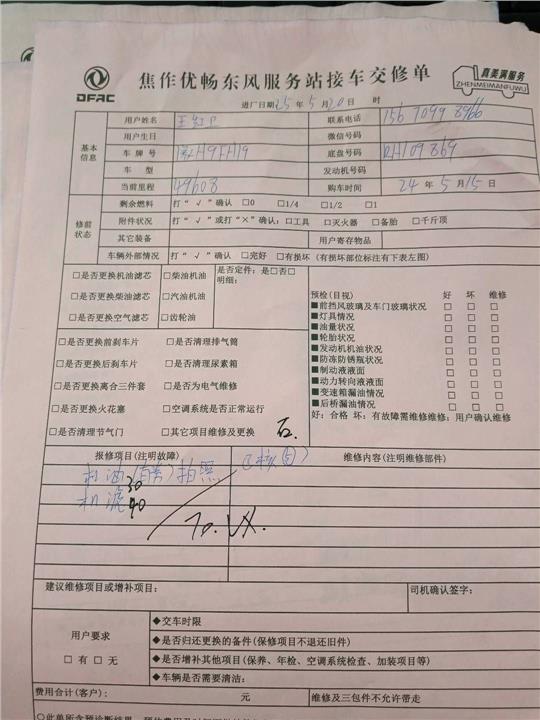 DFAC
焦作优畅东风服务站接车交修单
真美满服务
ZHENMEIMANFUWU
进厂日期:25年5月20日 时
基本信息
用户姓名 王红卫 联系电话 156 7099 8966
用户生日 微信号码
车牌号 H9FH19 底盘号码 RH109869
车型 发动机号码
当前里程 49608 购车时间 24年5月15日
修前状态
剩余燃料 打"√"确认 □0 □1/4 □1/2 □1
附件状况 打"√"或打"×"确认:□工具 □灭火器 □备胎 □千斤顶
其它装备 用户寄存物品
车辆外部情况 打"√"确认 □完好 □有损坏(有损坏部位标注有下表左图)
□是否更换机油滤芯 □柴油机油
□是否更换柴油滤芯 □汽油机油
□是否更换空气滤芯 □齿轮油
是否定件:是□否□
明细:
□是否更换前刹车片 □是否清理排气筒
□是否更换后刹车片 □是否清理尿素箱
□是否更换离合三件套 □是否为电气维修
□是否更换火花塞 □空调系统是否正常运行
□是否清理节气门 □其它项目维修及更换
预检(目视) 好 坏 维修
■前挡风玻璃及车门玻璃状况 □ □ □
■灯具情况 □ □ □
■油量状况 □ □ □
■轮胎状况 □ □ □
■发动机机油状况 □ □ □
■防冻防锈瓶状况 □ □ □
■制动液液面 □ □ □
■动力转向液液面 □ □ □
■变速箱漏油情况 □ □ □
■后桥漏油情况 □ □ □
好:合格 坏:有故障需维修维修:用户确认维修
报修项目(注明故障) 维修内容(注明维修部件)
机油(自带)拍照
30
机滤 40
70. VX.
建议维修项目或增补项目: 司机确认签字:
用户要求
□有□无
◆交车时限
◆是否归还更换的备件(保修项目不退还旧件)
◆是否增补其他项目(保养、年检、空调系统检查、加装项目等)
◆车辆是否需要清洁:
费用合计(客户): 元 维修及三包件不允许带走